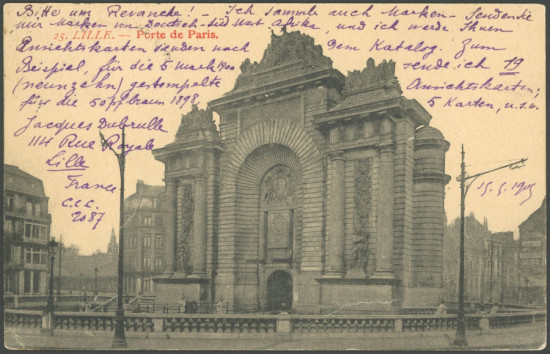 Bitte um Revanche! - Ich sammle auch Marken - Senden Sie
mir Marken von Deutsch-Süd West Afrika, und ich werde Ihnen
25. LILLE. — Porte de Paris.
Ansichtskarten senden nach Dem Katalog. Zum
Beispiel, für die 5 Mark 1900 sende ich 19
(neunzehn) gestempelte Ansichtskarten;
für die 50 pf braun 1898, 5 Karten, u.s.w.
Jacques Dubrulle
114 Rue Royale
Lille
France
C.C.C.
2087
15.5.1905